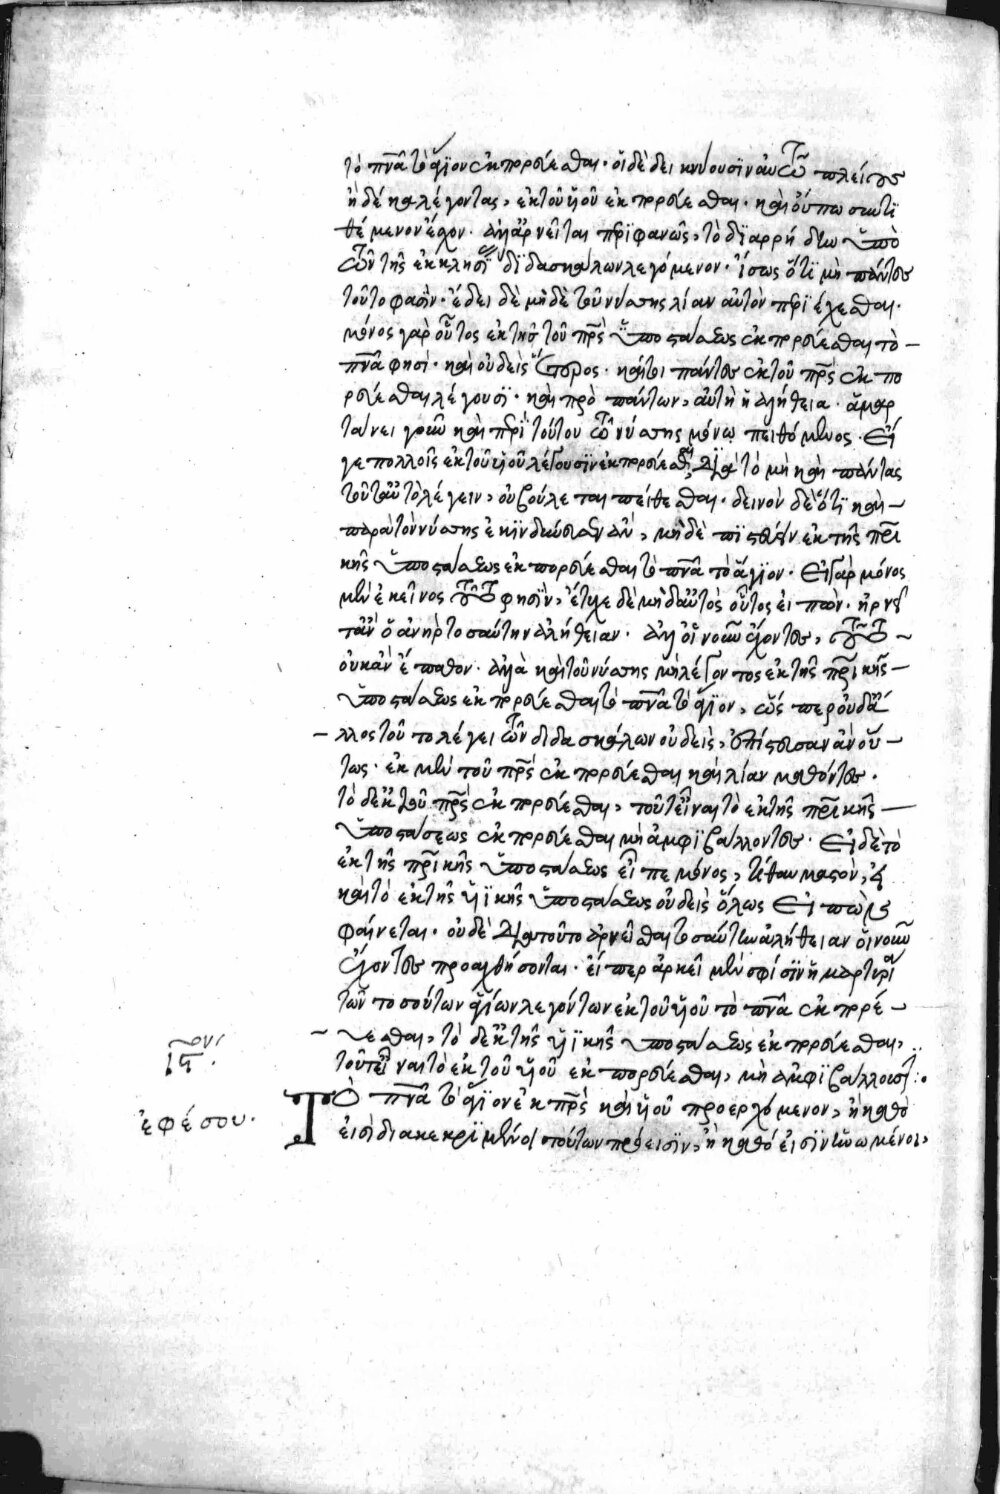 τὸ πνᾶ τὸ ἅγϊον ἐκπορεύεσθαι· οἱ δὲ δεικνύουσϊν αὐτῶ πλείους
ἤδέκα λέγοντας, ἐκ τοῦ ϋἱοῦ ἐκπορεύεσθαι. καὶ οὔπω
θέμενον ἔχον. ἀλλ' ἀρνεῖται περϊφανῶς, τὸ δϊαρρήδην ὑπὸ
τῶν τῆς ἐκκλησΐας δϊδασκάλων λεγόμενον· ἴσως ὅτϊ μὴ πάντες
τοῦτο φασϊν· ἔδει δὲ μηδὲ τοῦ νύσης λίαν αὐτὸν περϊέχεσθαι·
μόνος γὰρ οὗτος ἐκ τῆς τοῦ πρς ὑποστάσεως ἐκπορεύεσθαι τὸ
πνᾶ φησὶ· καὶ οὐδεὶς ἕτερος· καίτοι πάντες ἐκ τοῦ πρς ἐκπο
ρεύεσθαι λέγουσϊ· καὶ πρὸ πάντων, αὐτὴ ἡ ἀλήθεια· ἁμαρ
τάνει γοῦν καὶ περὶ τούτου τῶ νύσης μόνω πειθόμενος· Εἴ
γε πολλοῖς ἐκ τοῦ ϋἱοῦ λέγουσϊν ἐκπορεύεσθαι, δϊὰ τὸ μὴ καὶ πάντας
τοῦτ' αὐτὸ λέγειν, οὐ βούλεται πείθεσθαι· δεινὸν δὲ ὅτϊ καὶ
παρὰ τὸν νύσης ἐκϊνδύνευσεν ἂν, μηδὲ πϊστεύειν ἐκ τῆς πρϊ
κῆς ὑποστάσεως ἐκπορεύεσθαι τὸ πνᾶ τὸ ἅγϊον· Εἰ γὰρ μόνος
μὲν ἐκεῖνος τοῦτο φησϊν, ἔτυχε δὲ μηδ' αὐτὸς οὗτος εἰπὼν· ἠρνεῖ
τ' ἂν ὁ ἀνὴρ τοσαύτην ἀλήθειαν· ἀλλ' οἱ νοῦν ἔχοντες, τοῦτο
οὐκ ἂν ἔπαθον· ἀλλὰ καὶ τοῦ νύσης μὴ λέγοντος ἐκ τῆς πρϊκῆς
ὑποστάσεως ἐκπορεύεσθαι τὸ πνᾶ τὸ ἅγϊον, ὥσπερ οὐδ' ἄ
λλος τοῦτο λέγει τῶν διδασκάλων οὐδεὶς, ἐπίστευσαν ἂν οὕ
τως· ἐκ μὲν τοῦ πρς ἐκπορεύεσθαι καὶ λίαν μαθόντες·
τὸ δ' ἐκ τοῦ πρς ἐκπορεύεσθαι, τοῦτ' εἶναι τὸ ἐκ τῆς πρϊκῆς
ὑποστάσεως ἐκπορεύεσθαι μὴ ἀμφϊβάλλοντες· Εἰ δὲ τὸ
ἐκ τῆς πρϊκῆς ὑποστάσεως εἶπε μόνος, τί θαυμαστὸν, εἰ
καὶ τὸ ἐκ τῆς ϋἱϊκῆς ὑποστάσεως οὐδεὶς ὅλως εἰπὼν
φαίνεται· οὐδὲ δϊὰ τοῦτο ἀρνεῖσθαι τοσαύτην ἀλήθειαν οἱ νοῦν
ἔχοντες προαχθήσονται· εἴπερ ἀρκεῖ μὲν σφίσϊν ἡ μαρτυρία
τῶν τοσούτων ἁγίων λεγόντων ἐκ τοῦ ϋἱοῦ τὸ πνᾶ ἐκπορεύ
εσθαι, τὸ δ' ἐκ τῆς ϋἱϊκῆς ὑποστάσεως ἐκπορεύεσθαι,
τοῦτ' εἶναι τὸ ἐκ τοῦ ϋἱοῦ ἐκπορεύεσθαι, μὴ ἀμφϊβάλλουσϊ:·
Τὸ πνᾶ τὸ ἅγϊον ἐκ πρς καὶ ϋἱοῦ προερχόμενον, ἢ καθό
εἰσὶ διακεκρϊμένοι τούτων πρόεισϊν, ἢ καθό εἰσϊν ἡνωμένοι,
ἐφέσου·